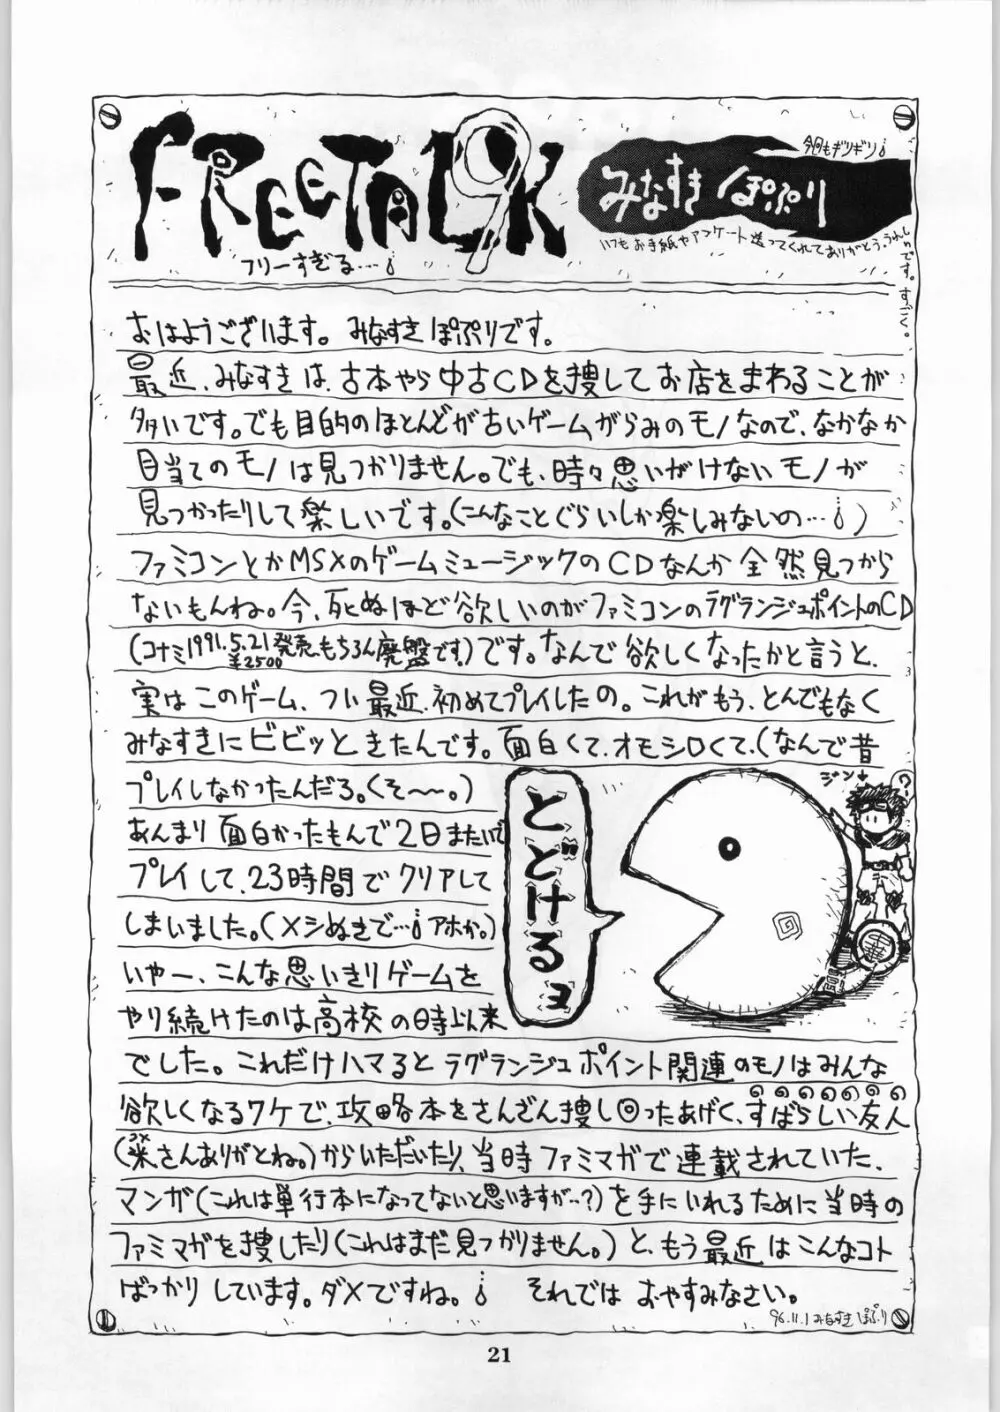 FREE TALK 9
今回もギリギリ
みなすき ぽぷり
いつもお手紙やアンケート送ってくれてありがとう、うれしいです。すごく。
フリーすぎる…
おはようございます。みなすき ぽぷりです。
最近、みなすきは、古本やら中古CDを捜してお店をまわることが
多いです。でも目的のほとんどが古いゲームがらみのモノなので、なかなか
目当てのモノは見つかりません。でも、時々思いがけないモノが
見つかったりして楽しいです。(こんなことぐらいしか楽しみないの…)
ファミコンとかMSXのゲームミュージックのCDなんか全然見つから
ないもんね。今、死ぬほど欲しいのがファミコンのラグランジュポイントのCD
(コナミ1991.5.21発売、もちろん廃盤です。)です。なんで欲しくなったかと言うと、
¥2500
実はこのゲーム、つい最近、初めてプレイしたの。これがもう、とんでもなく
みなすきにビビッときたんです。面白くて、オモシロくて、(なんで昔
プレイしなかったんだろ。くそ〜。)
あんまり面白かったもんで2日またいで
プレイして、23時間でクリアして
しまいました。(メシぬきで…アホか。)
いやー、こんな思いきりゲームを
やり続けたのは高校の時以来
でした。これだけハマるとラグランジュポイント関連のモノはみんな
欲しくなるワケで、攻略本をさんざん捜し回ったあげく、すばらしい友人
(米さんありがとね。)からいただいたり、当時ファミマガで連載されていた、
コメ
マンガ(これは単行本になってないと思いますが…?)を手にいれるために当時の
ファミマガを捜したり(これはまだ見つかりません。)と、もう最近はこんなコト
ばっかりしています。ダメですね。 それではおやすみなさい。
とどけるョ
ジン
?
96.11.1 みなすき ぽぷり
21